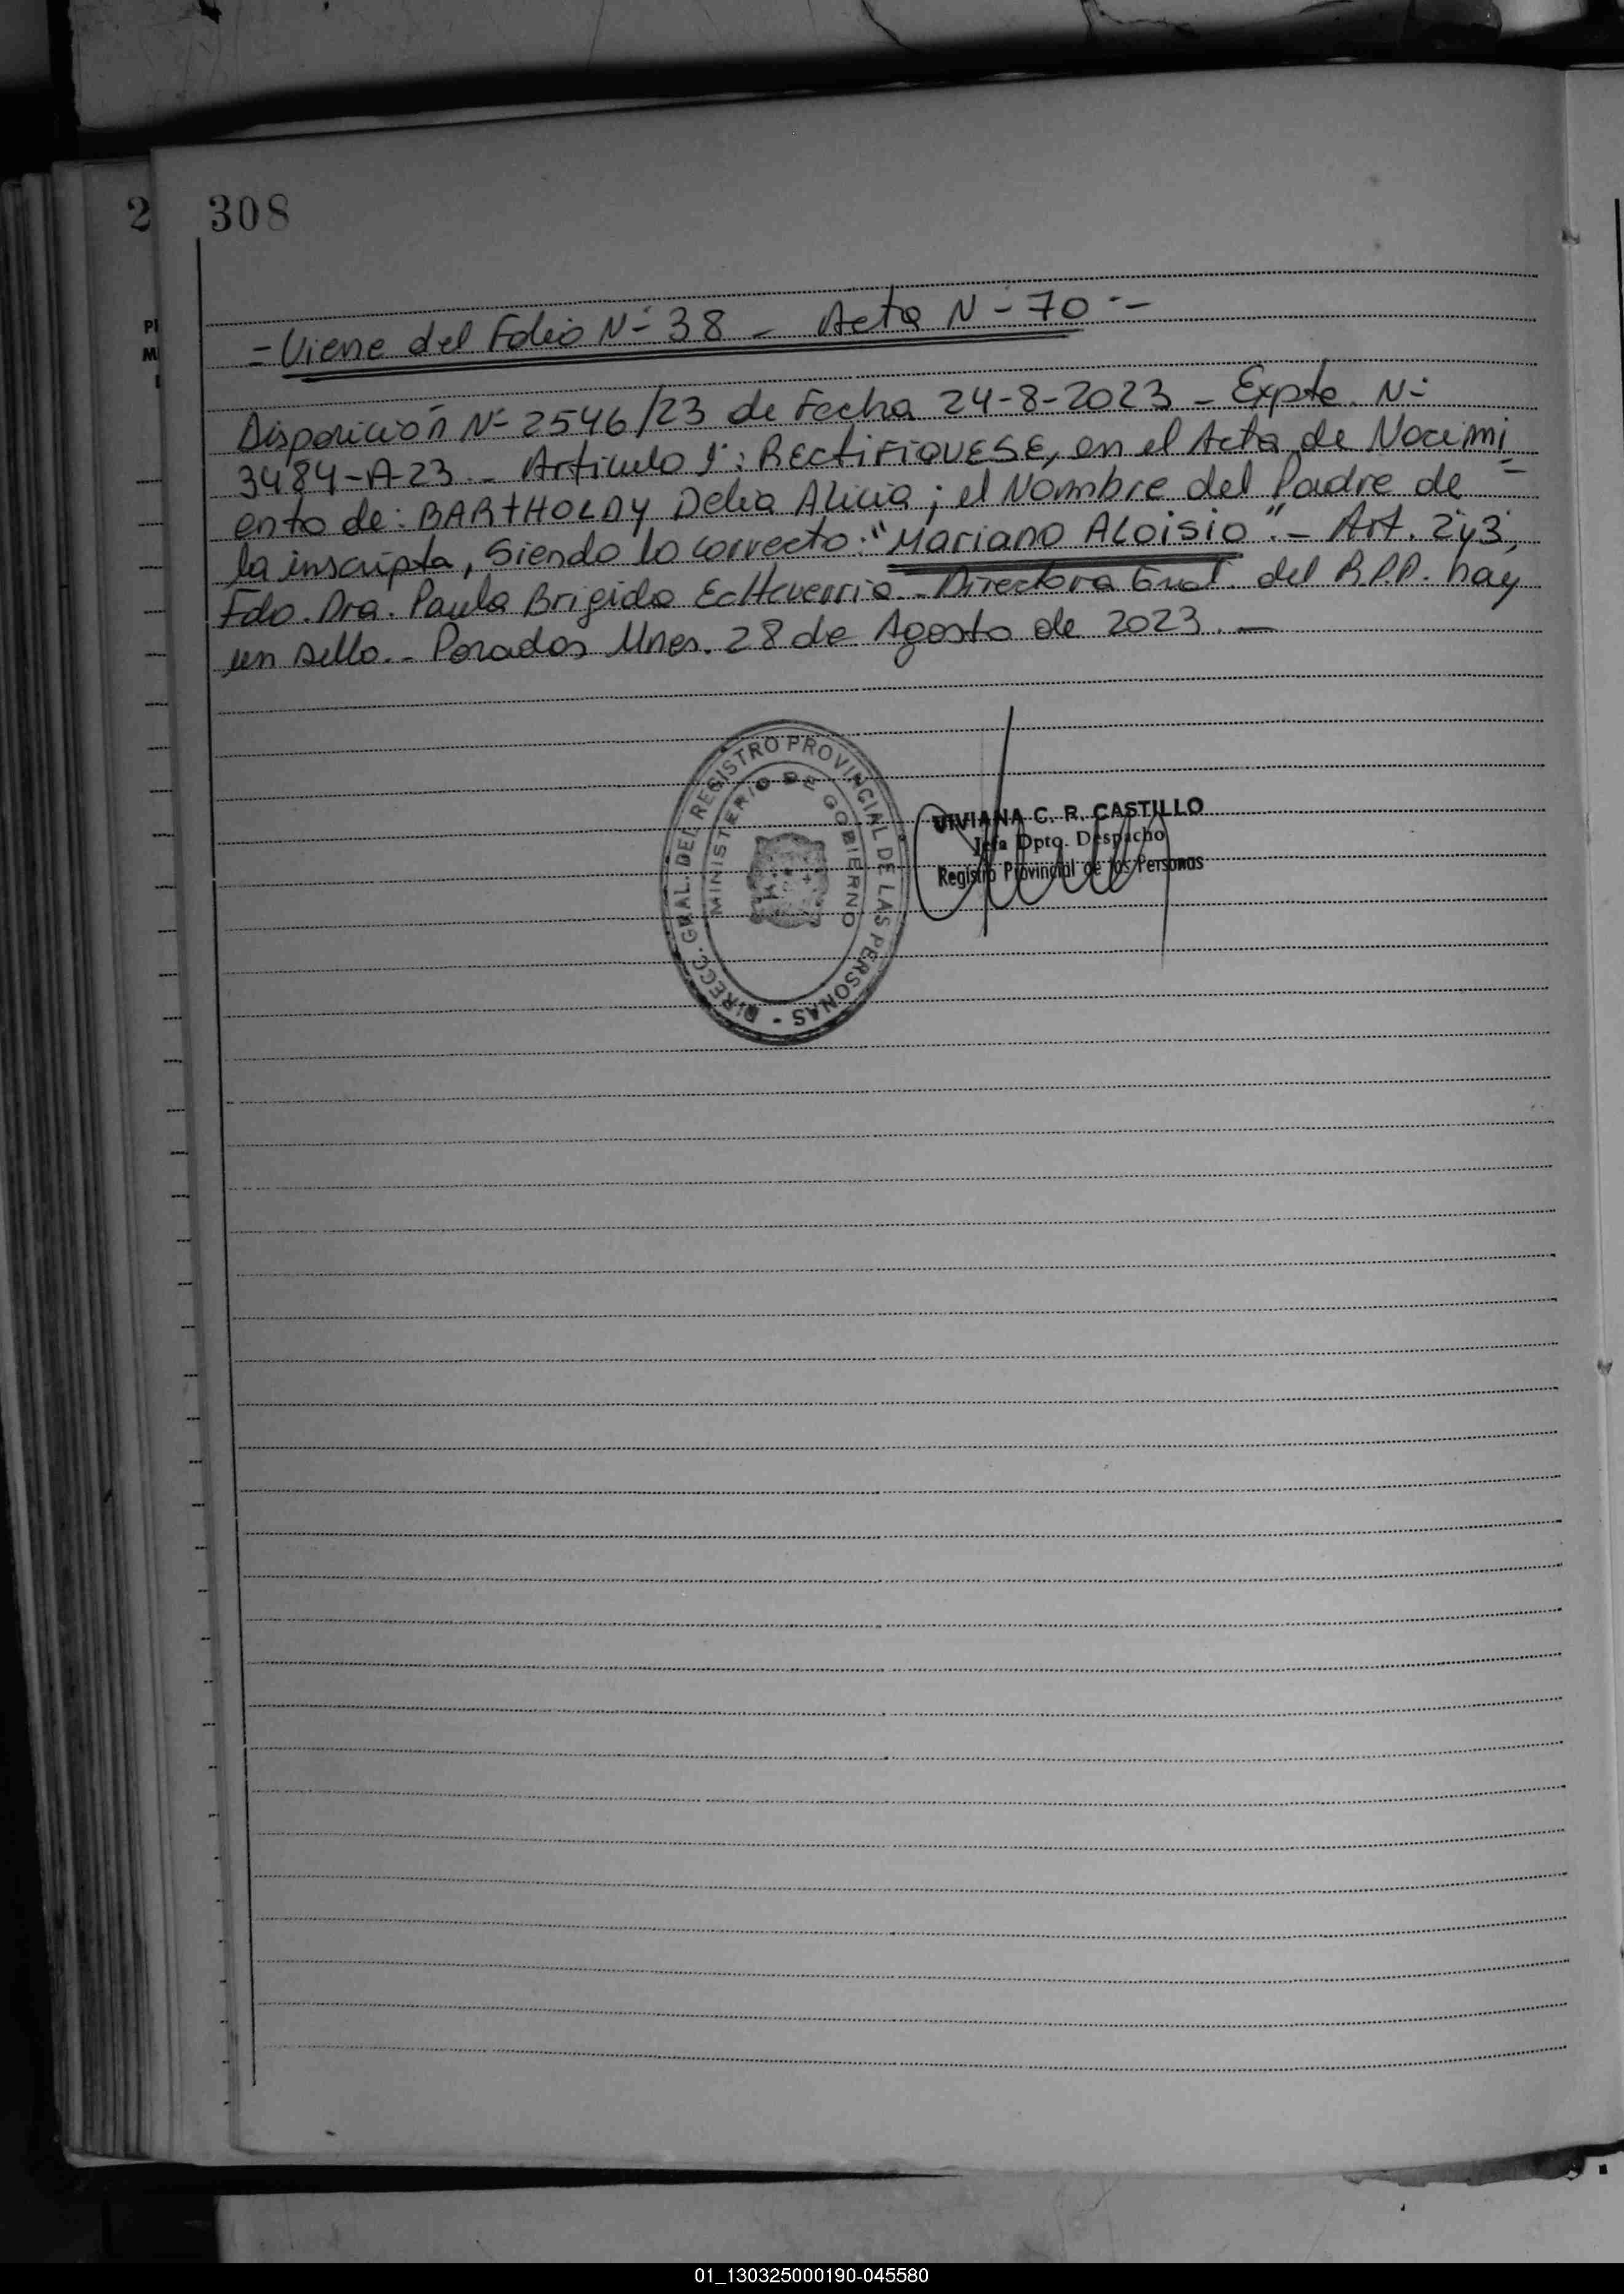 2 308
PI
M
I
= Viene del Folio N- 38 - Acta N- 70 .-
Disposición N- 2546/23 de Fecha 24-8-2023 - Expte. N-
3484-A-23.- Articulo 1°: RECTIFIQUESE, en el Acta de Nacimi
ento de: BARTHOLDY Delia Alicia; el Nombre del Padre de
la inscripta, Siendo lo correcto: "Mariano ALOISIO".- Art. 2 y 3,
Fdo. Dra. Paula Brigida Echeverria.- Directora Gral. del R.P.P. hay
un sello.- Posadas Mnes. 28 de Agosto de 2023.-
DIRECC. GRAL. DEL REGISTRO PROVINCIAL DE LAS PERSONAS -
MINISTERIO DE GOBIERNO
VIVIANA C. R. CASTILLO
Jefa Dpto. Despacho
Registro Provincial de las Personas
01_130325000190-045580